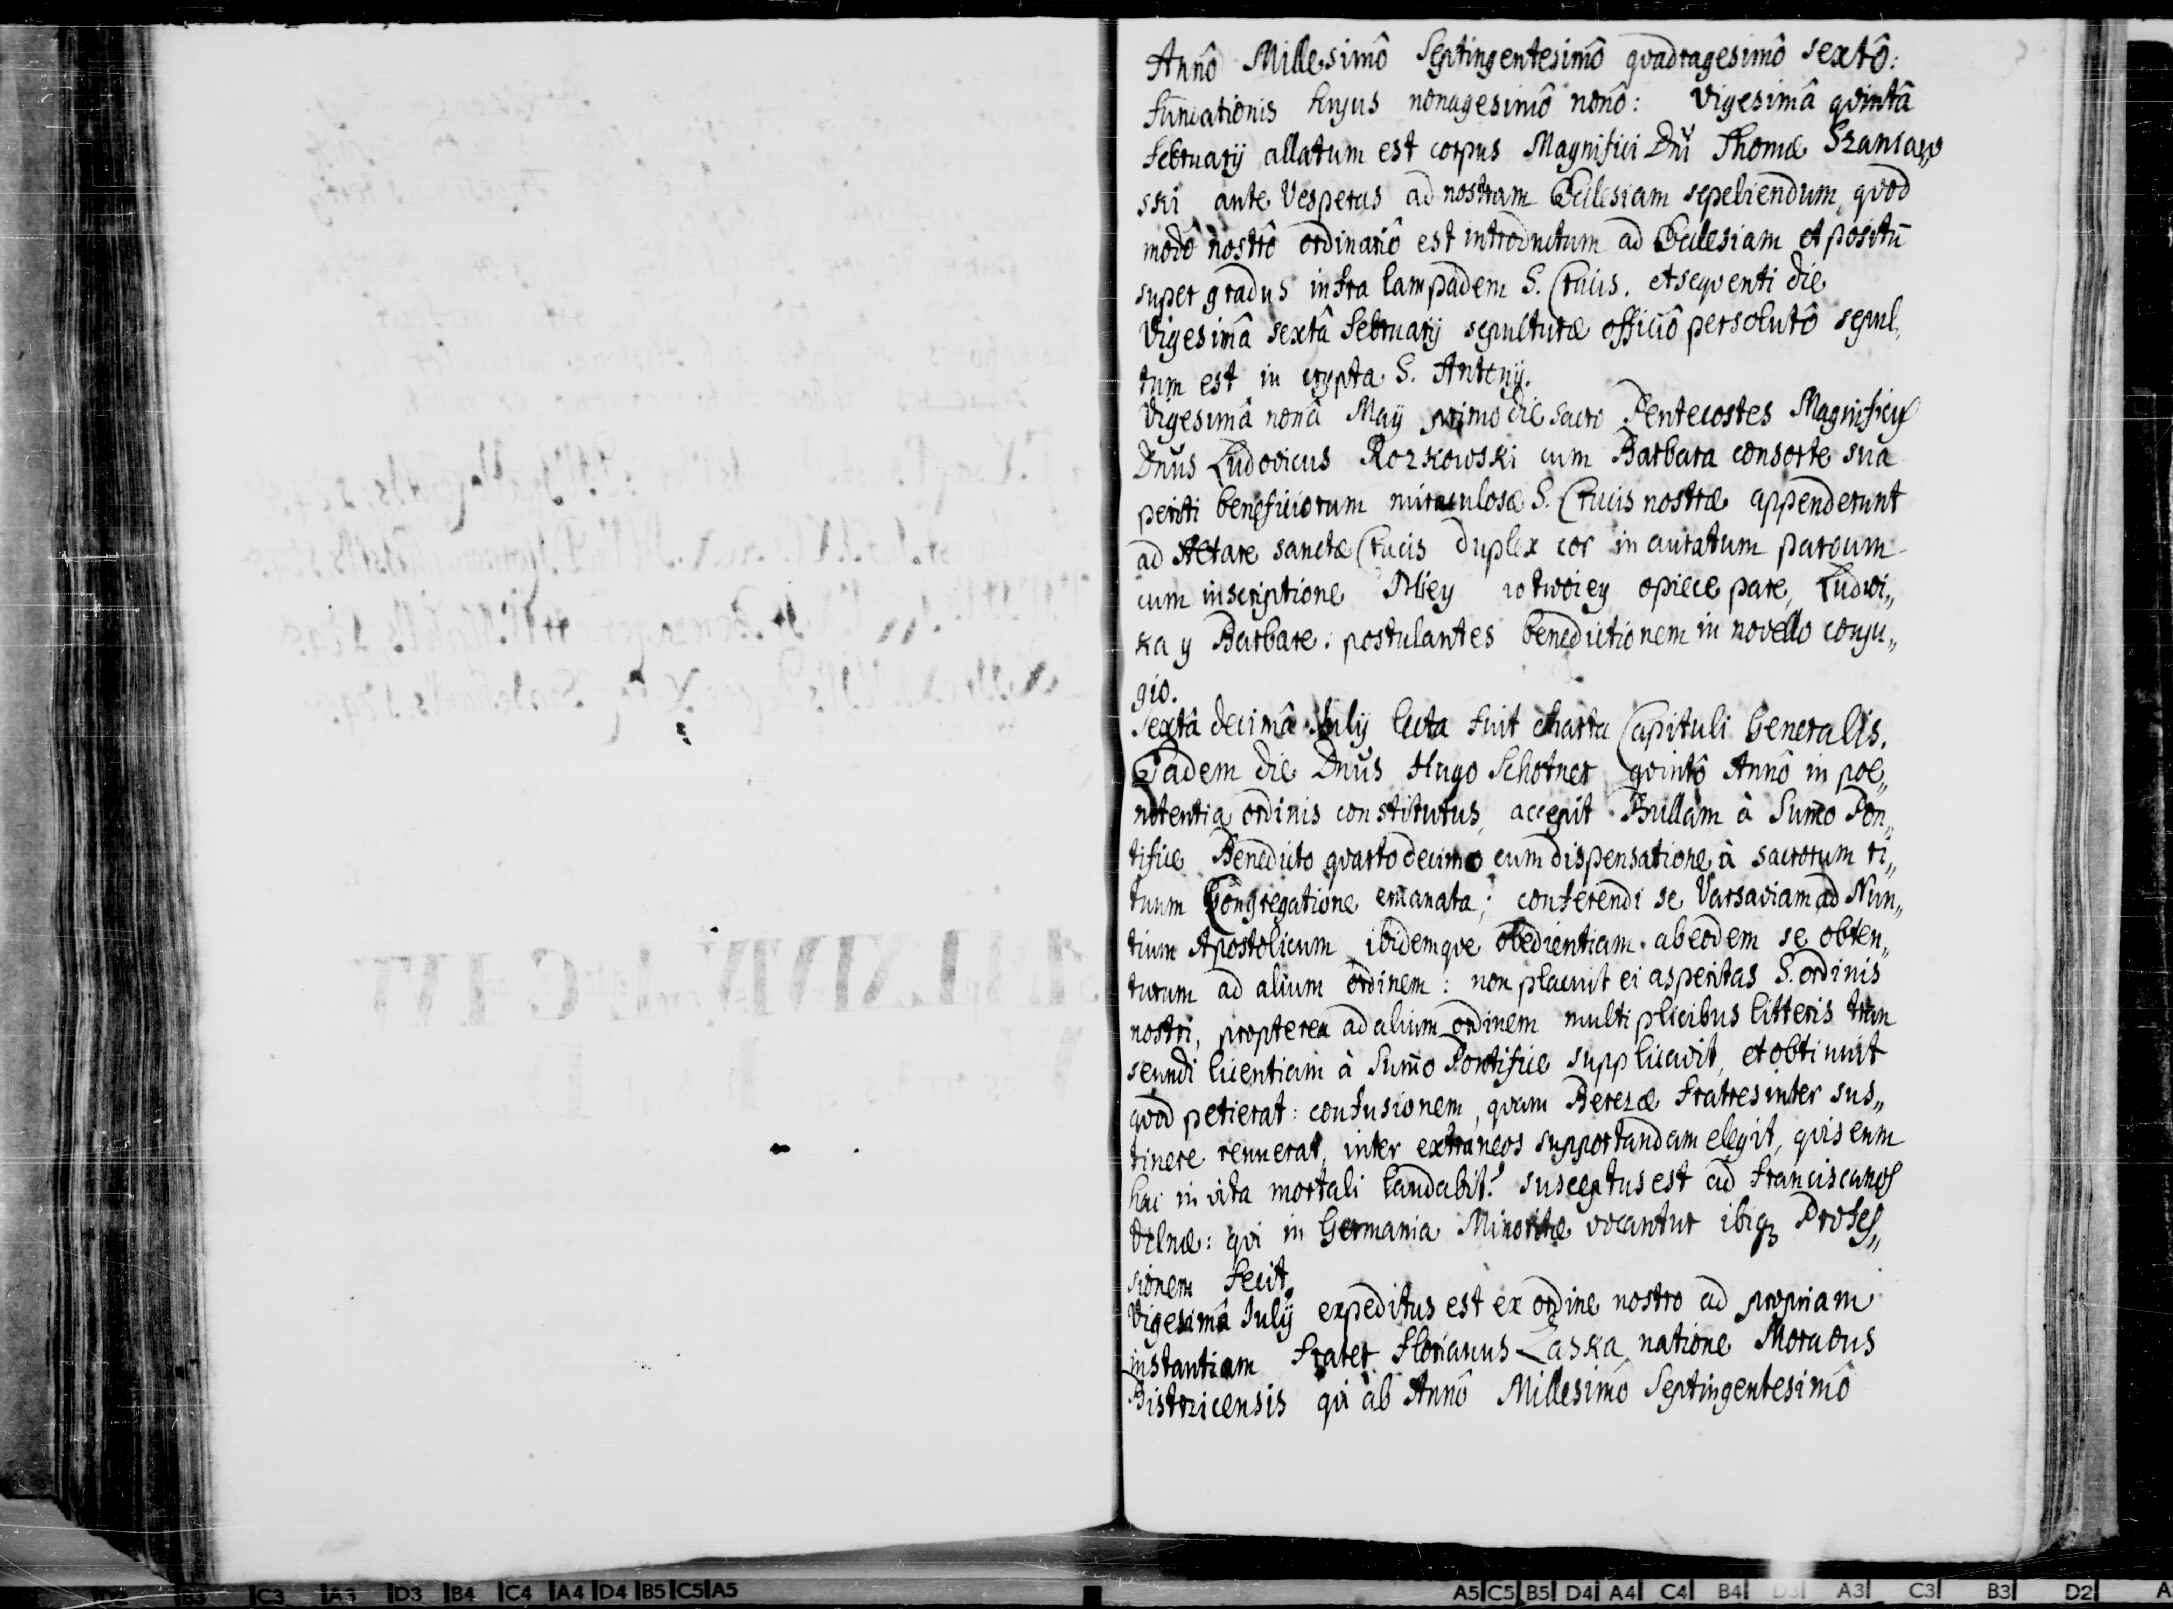 Annô Millesimô Septingentesimô qvadragesimô sextô:
funda͞tionis hujus nonagesimô nonô: Vigesimâ qvintâ
februarÿ allatum est corpus Magnifici Dn̄i Thomæ Szaniaw„
ski ante Vesperas ad nostram Ecclesiam sepeliendum, qvod
modô nostrô ordinariô est introductum ad Ecclesiam et positū
super gradus infra lampadem S. Crucis. et seqventi die
Vigesimâ sextâ februarÿ sepulturæ officiô persolutô sepul„
tum est in crypta S. Antonÿ.
Vigesimâ nonâ Maÿ primo die sacro Pentecostes Magnificus
Dn̄us Ludovicus Rozkowski cum Barbara consorte sua
periti beneficiorum miraculosæ S. Crucis nostræ appenderunt
ad Altare sanctæ Crucis duplex cor inauratum parvum
cum inscriptione Miey w twoiey opiece pare, Ludwi„
ka y Barbare. postulantes benedictionem in novello conju„
gio.
Sextâ decimâ Julÿ lecta fuit charta Capituli Generalis.
Eadem die Dn̄us Hugo Schotner qvintô Annô in poe„
nitentia ordinis constitutus, accepit Bullam à Sum̄o Pon„
tifice Benedicto qvarto decimo cum dispensatione à sacrorum ri„
tuum Congregatione emanata; conferendi se Varsaviam ad Nun„
tium Apostolicum, ibidemqve obedientiam ab eodem se obten„
turum ad alium ordinem: non placuit ei asperitas S. ordinis
nostri, propterea ad alium ordinem multiplicibus litteris tran
seundi licentiam à Sum̄o Pontifice supplicavit, et obtinuit
qvod petierat: confusionem, qvam Berezæ fratres inter sus„
tinere renuerat, inter extraneos supportandam elegit, qvis eum
hac in vita mortali laudabit? susceptus est ad Franciscanos
Vilnæ: qvi in Germania Minoritæ vocantur ibiqꝫ Profes„
sionem fecit.
Vigesimâ Julÿ expeditus est ex ordine nostro ad propriam
instantiam frater Florianus Laska natione Moravus
Bistricensis qvi ab Annô Millesimô Septingentesimô
D2 B3 C3 A3 D3 B4 C4 A4 D4 B5 C5 A5
A5 C5 B5 D4 A4 C4 B4 D3 A3 C3 B3 D2 A